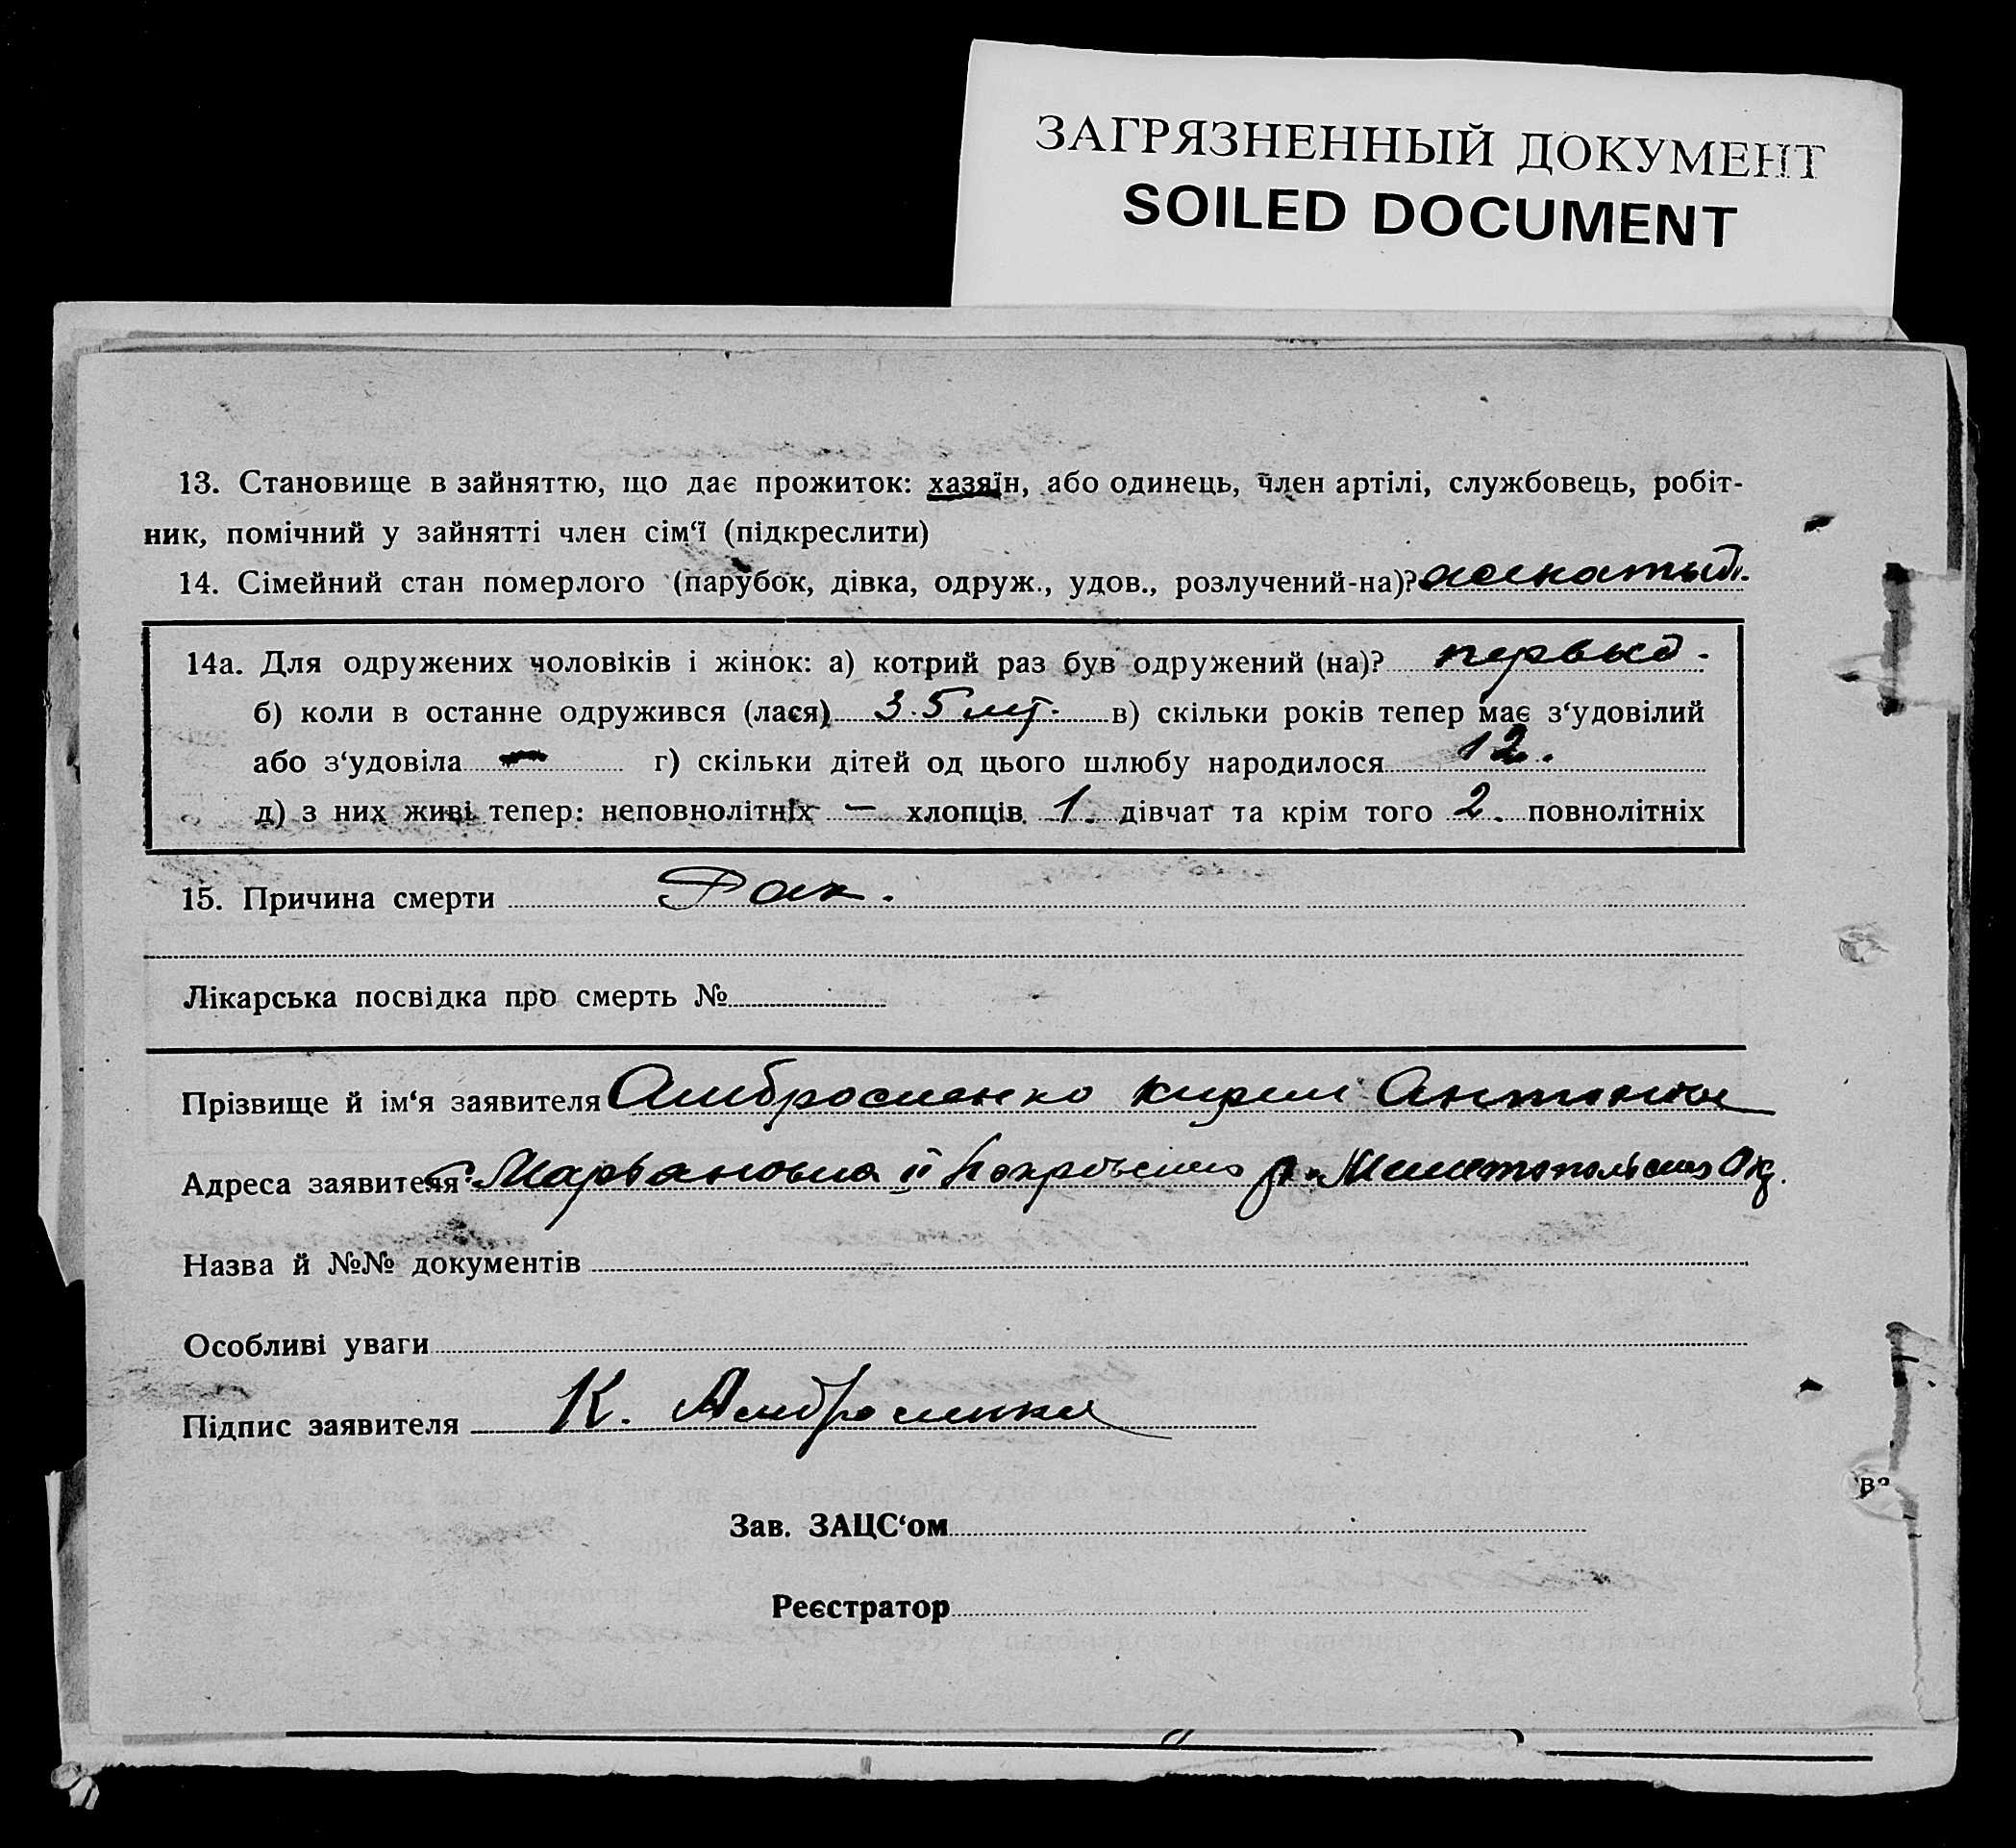 ЗАГРЯЗНЕННЫЙ ДОКУМЕНТ
SOILED DOCUMENT
13. Становище в зайняттю, що дає прожиток: хазяїн, або одинець, член артілі, службовець, робіт-
ник, помічний у зайнятті член сім‘ї (підкреслити)
14. Сімейний стан померлого (парубок, дівка, одруж., удов., розлучений-на)? женатый.
14а. Для одружених чоловіків і жінок: а) котрий раз був одружений (на)? первый.
б) коли в останне одружився (лася) 35 лет. в) скільки років тепер має з‘удовілий
або з‘удовіла — г) скільки дітей од цього шлюбу народилося 12.
д) з них живі тепер: неповнолітніх — хлопців 1. дівчат та крім того 2. повнолітніх
15. Причина смерти Рак.
Лікарська посвідка про смерть №
Прізвище й ім‘я заявителя Амбросиенко Кирил
Адреса заявителя с. Марьановка II Покровского р. Мелитопольского Окр.
Назва й №№ документів
Особливі уваги
Підпис заявителя К.
Зав. ЗАЦС‘ом
Реєстратор